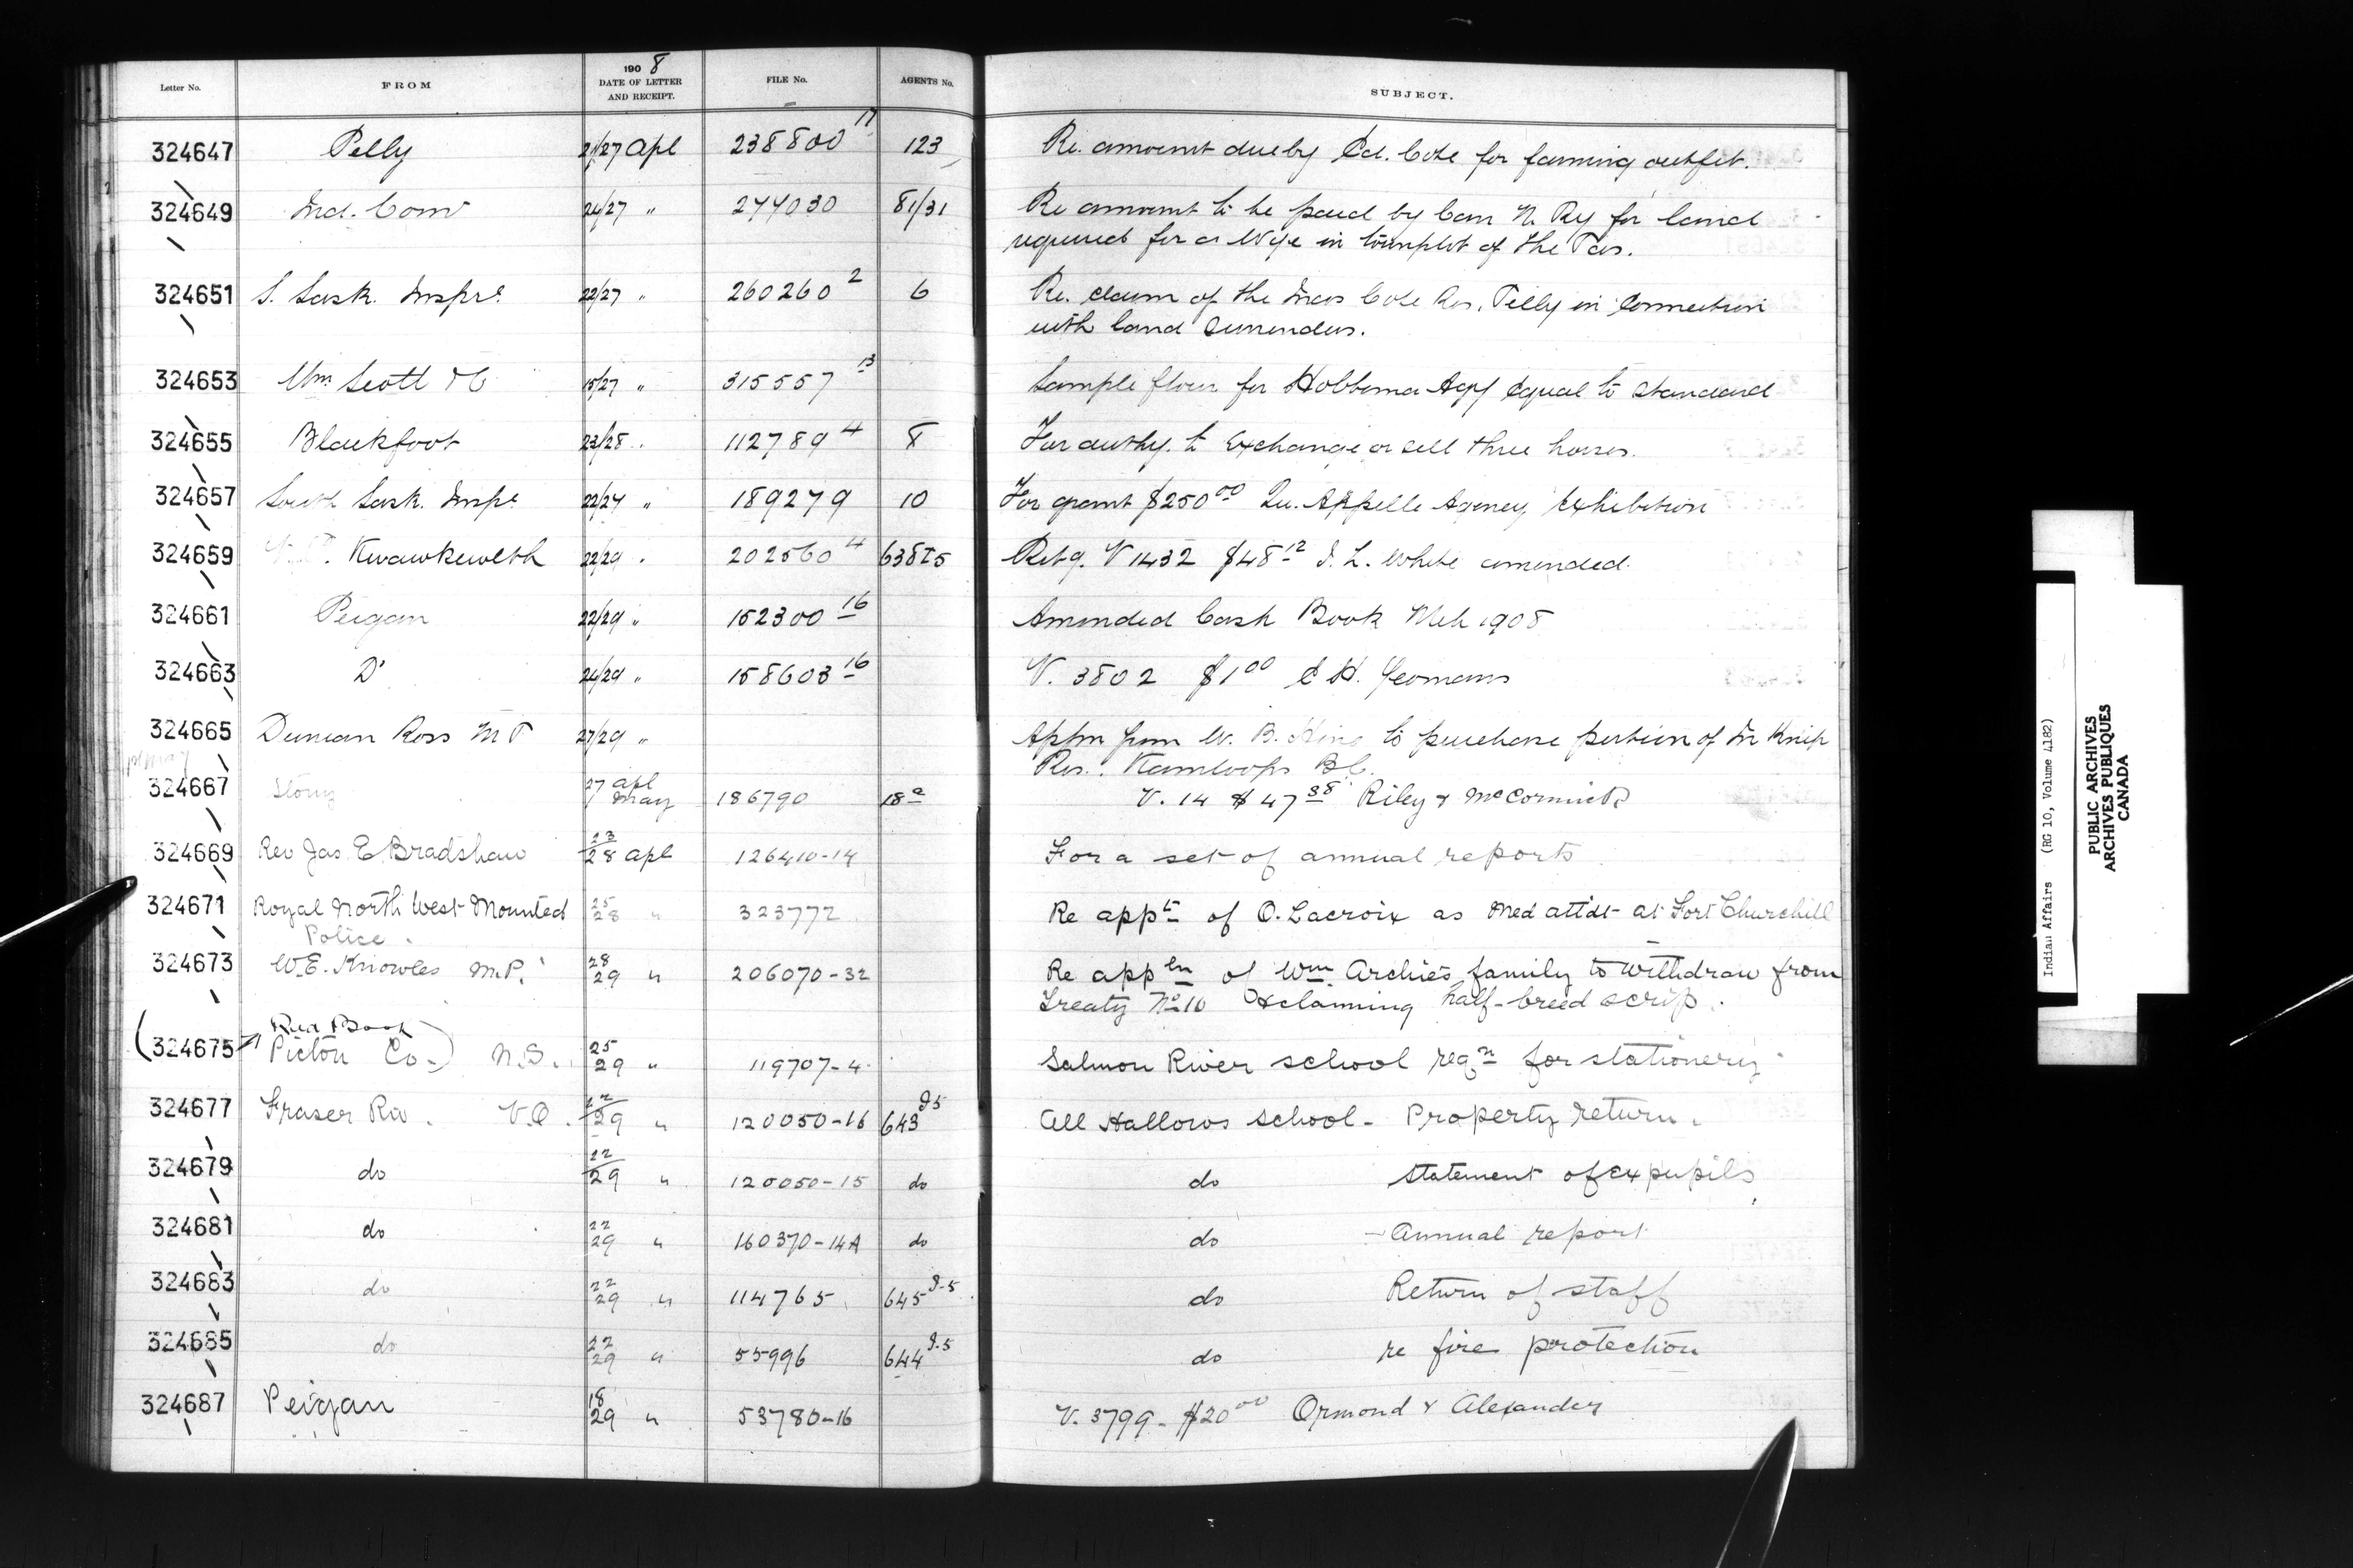 Letter No. FROM 1908 DATE OF LETTER AND RECEIPT. FILE No. AGENTS No. SUBJECT.
324647 Pelly 21/27 Apl 238800 17 123 Re. amount due by Ed. Cote for farming outfit.
324649 Ind. Comr 24/27 " 274030 81/31 Re amount to be paid by Can N. Ry for land
required for a Wye in townplot of The Pas.
324651 S. Sask. Inspr. 22/27 " 260260 2 6 Re. claim of the Inds Cote Res. Pelly in connection
with land surrenders.
324653 Wm Scott & Co 15/27 " 315557 13 Sample flour for Hobbema Agy equal to standard
324655 Blackfoot 23/28 " 112789 4 8 For authy. to exchange or sell three horses.
324657 South Sask. Insp. 22/27 " 189279 10 For grant $250 00 Qu. Appelle Agency Exhibition
324659 Kwawkewlth 22/29 " 202560 4 638 Retg. V 1432 $48 12 White amended.
324661 Peigan 22/29 " 152300 16 Amended Cash Book Mch 1908
324663 Do 24/29 " 158603 16 V. 3802 $1 00 E H. Yeomans
324665 Duncan Ross M P 27/29 " Appn from W. B. King to purchase portion of
Res. Kamloops B.C.
324667 Stony 27 Apl 1 May 186790 18 a V. 14 $47 38 Riley & McCormick
324669 Rev Jas E Bradshaw 23/28 Apl 126410-14 For a set of annual reports
324671 Royal North West Mounted 25/28 " 323772 Re appt of O. Lacroix as Med attdt at Fort Churchill
Police.
324673 W.E. Knowles M.P. 28/29 " 206070-32 Re appln of Wm Archie's family to withdraw from
Treaty No 10 & claiming half-breed scrip.
Red Book
(324675 Pictou Co.) N.S. 25/29 " 119707-4 Salmon River school reqn for stationery
324677 Fraser Riv. V.O. 22/29 " 120050-16 643 I5 All Hallows School - Property return.
324679 do 22/29 " 120050-15 do do Statement of ex pupils
324681 do 22/29 " 160370-14A do do - Annual report
324683 do 22/29 " 114765 645 I-5 do Return of staff
324685 do 22/29 " 55996 644 I-5 do re fire protection
324687 Peigan 18/29 " 53780-16 V. 3799 - $20 00 Ormond & Alexander
Indian Affairs (RG 10, Volume 4182)
PUBLIC ARCHIVES
ARCHIVES PUBLIQUES
CANADA